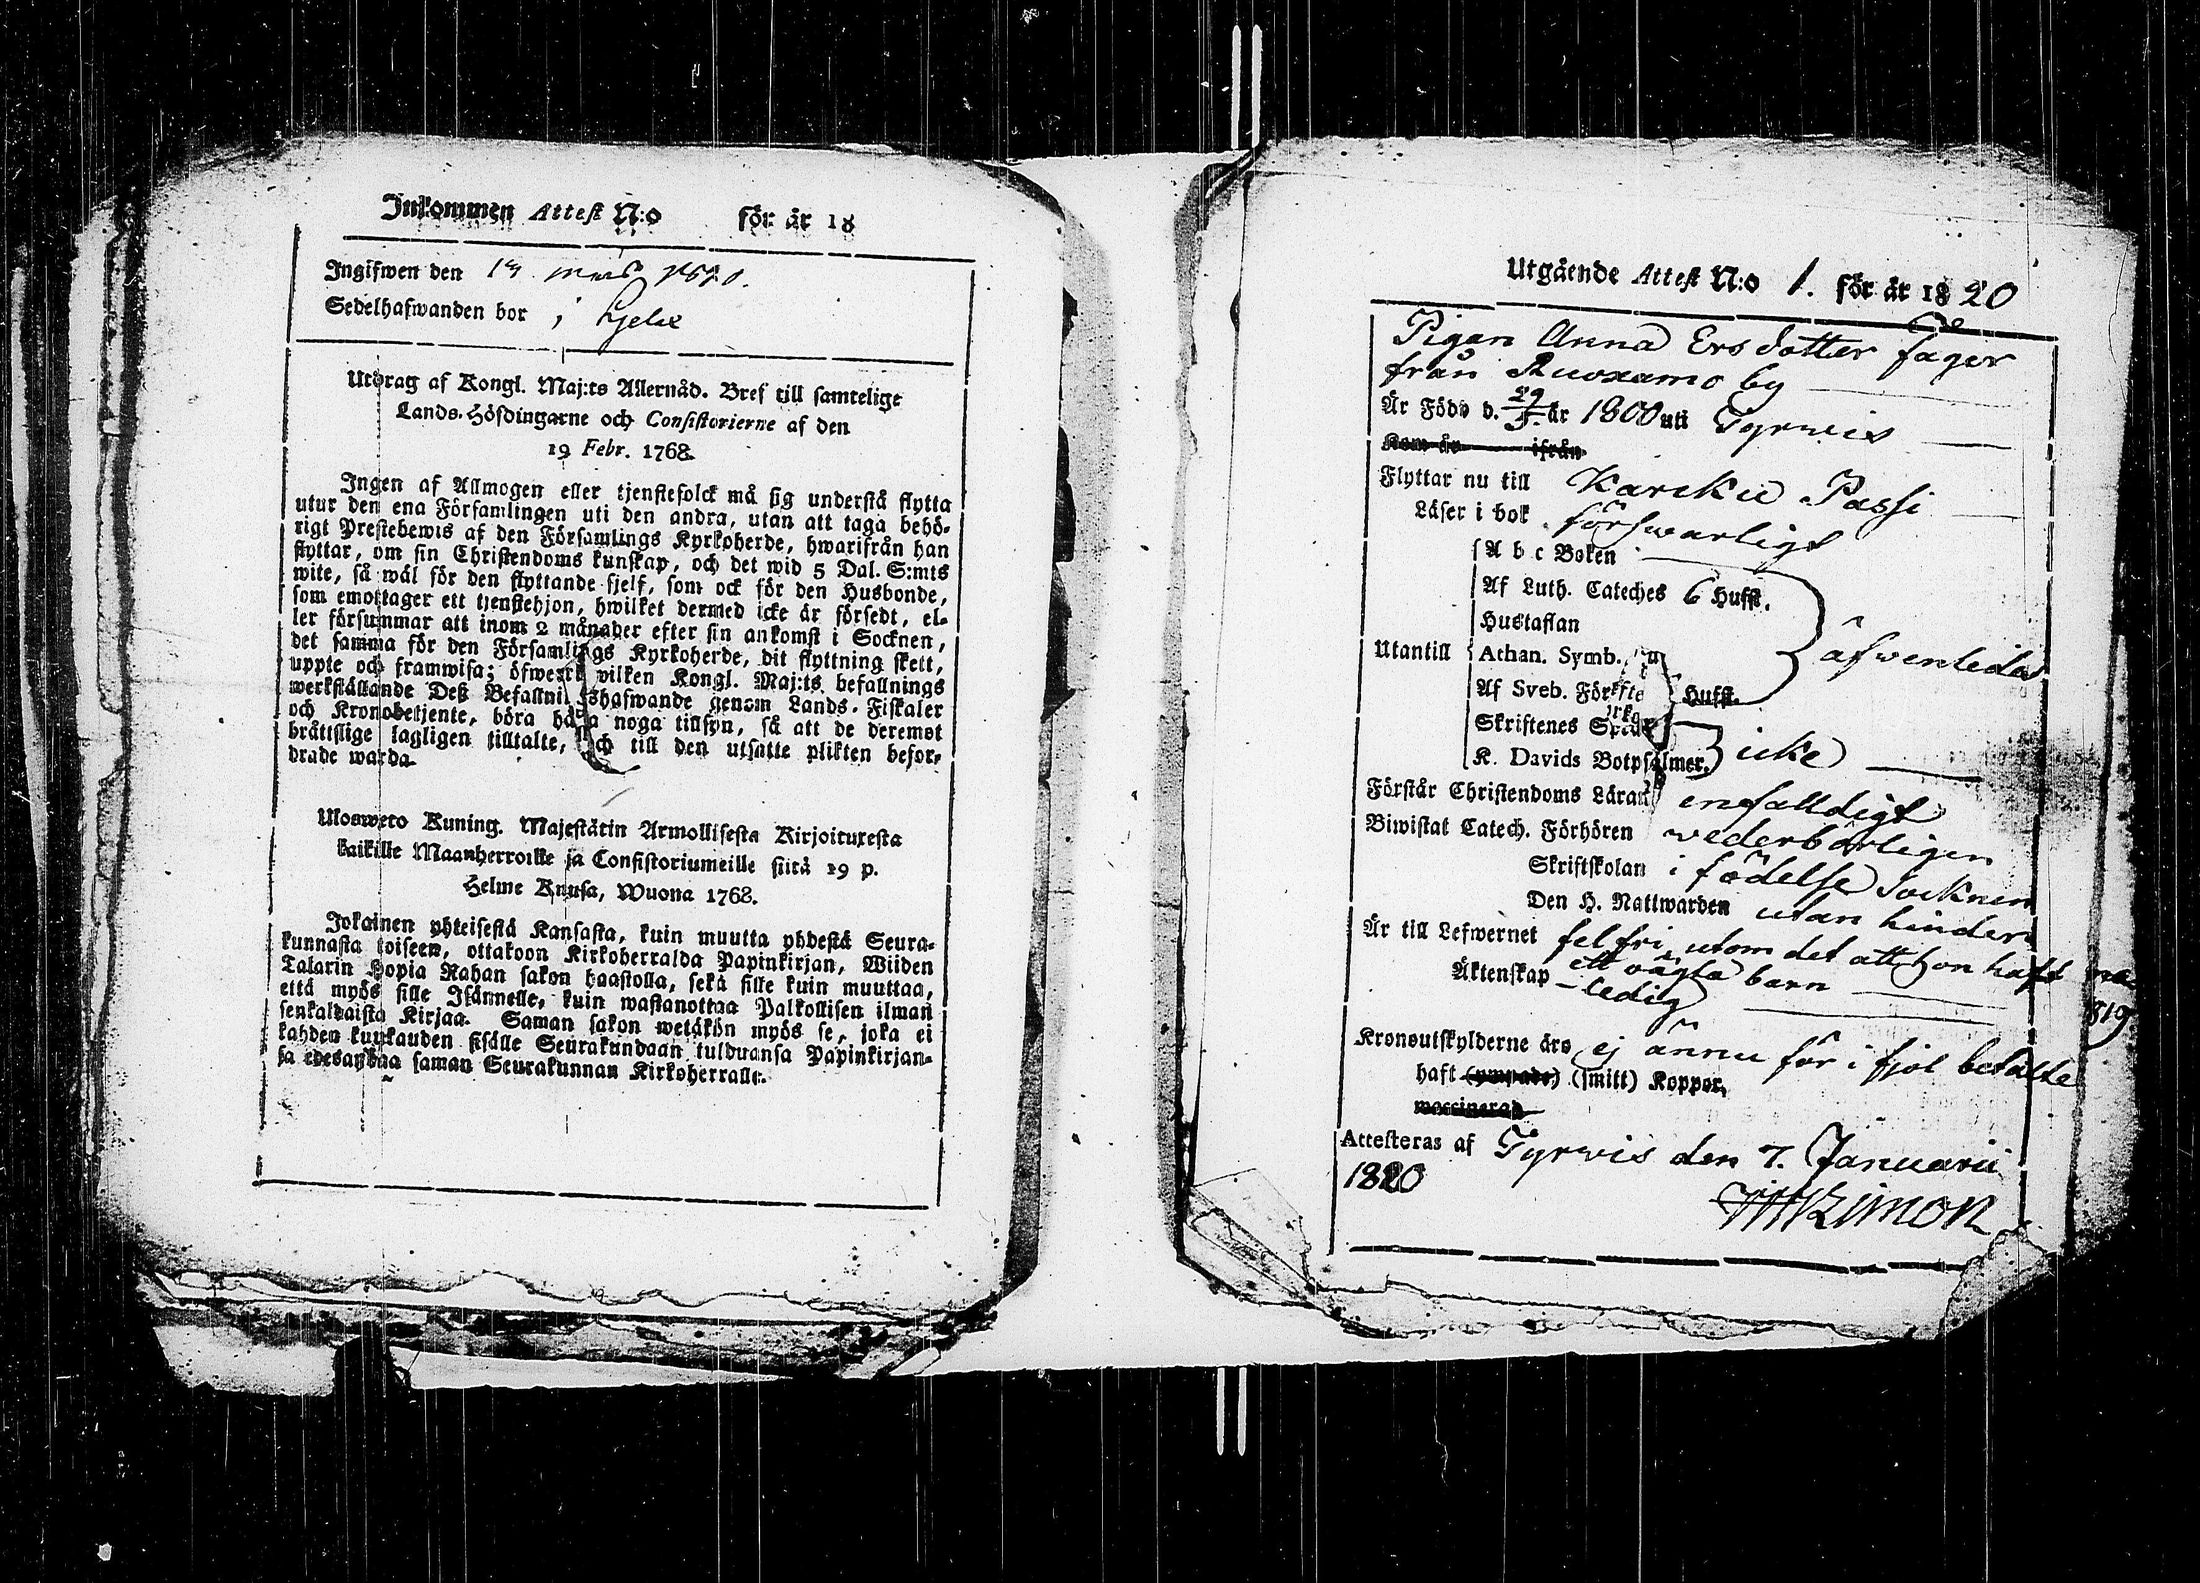 Inkommen Attest N:o för år 18
Ingifwen den 19 1820.
Sedelhafwanden bor i
Utdrag af Kongl. Maj:ts Allernåd. Bref till samtelige
Lands-Höfdingarne och Consistorierne af den
19 Febr. 1768.
Ingen af Allmogen eller tjenstefolck må sig understå flytta
utur den ena Församlingen uti den andra, utan att taga behö-
rigt Prestebewis af den Församlings Kyrkoherde, hwarifrån han
flyttar, om sin Christendoms kunskap, och det wid 5 Dal. S:mts
wite, så wäl för den flyttande sjelf, som ock för den Husbonde,
som emottager ett tjenstehjon, hwilket dermed icke är försedt, el-
ler försummar att inom 2 månader efter sin ankomst i Socknen,
det samma för den Församlings Kyrkoherde, dit flyttning skett,
uppte och framwisa; öfwer wilken Kongl. Maj:ts befallnings
werkställande Deß Befallningshafwande genom Lands-Fiskaler
och Kronobetjente, böra hafwa noga tillsyn, så att de deremot
bråttslige lagligen tilltalte, och till den utsatte plikten befor-
drade warda.
Ulosweto Kuning. Majestätin Armollisesta Kirjoituxesta
kaikille Maanherroille ja Consistoriumeille siitä 19 p.
Helme Kuusa, Wuona 1768.
Jokainen yhteisestä Kansasta, kuin muutta yhdestä Seura-
kunnasta toiseen, ottakoon Kirkoherralda Papinkirjan, Wiiden
Talarin Hopia Rahan sakon haastolla, sekä sille kuin muuttaa,
että myös sille Isännelle, kuin wastanottaa Palkollisen ilman
senkaldaista Kirjaa. Saman sakon wetäkön myös se, joka ei
kahden kuukauden sisälle Seurakundaan tulduansa Papinkirjan-
sa edesandaa saman Seurakunnan Kirkoherralle.
Utgående Attest N:o 1. för år 1820
Pigan Anna Ersdotter Fager
från Ruoxamo by
Är Född d. 29/5. år 1800 uti Tyrwis
Kom år ifrån
Flyttar nu till Karcku Passi
Läser i bok förswarligt
A b c Boken
Af Luth. Cateches 6 Hufst.
Hustaflan
Utantill Athan. Symb. åfwenledes
Af Sveb. Förkl. Hufst.
Skriftenes Språk
K. Davids Botpsalmer. icke
Förstår Christendoms Läran enfalldigt
Biwistat Catech. Förhören wederbörligen
Skriftskolan i födelse Socknen
Den H. Nattwarden utan hinder
Är till Lefwernet fel fri, utom det att hon haft
ett oägta barn 1819
Äktenskap ledig
Kronoutskylderne äro ej ännu för i fjol betalte
haft (ympade) (smitt) Koppor,
waccinerad
Attesteras af Tyrwis den 7. Januarii
1820